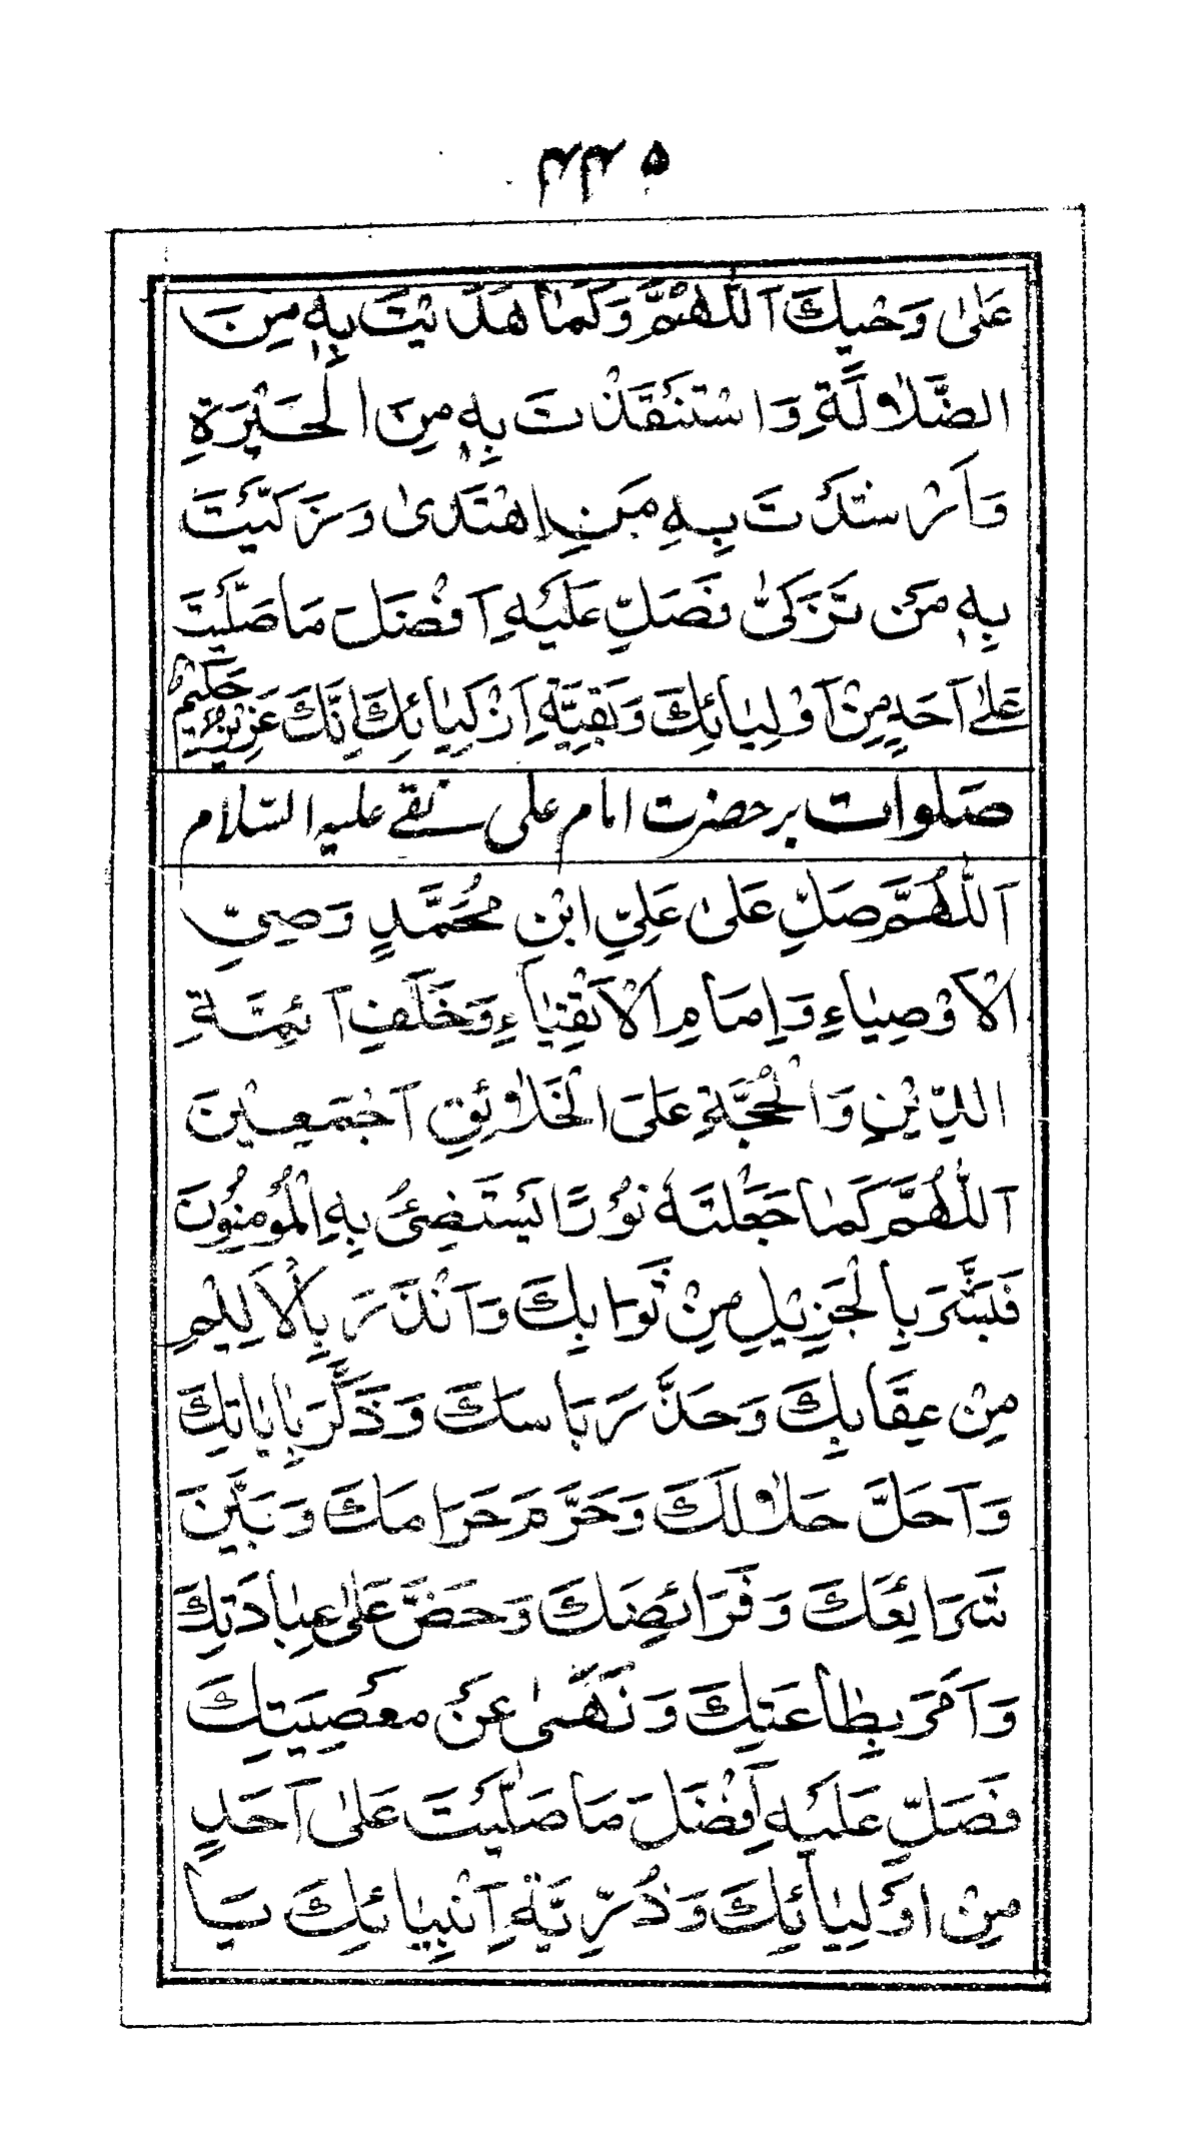 ۵۴۴
عَلىٰ وَحْيِكَ اَللّٰهُمَّ وَكَمٰا هَدَيْتَ بِهٖ مِنَ
الضَّلاٰلَةِ وَاسْتَنْقَذْتَ بِهٖ مِنَ الْحَيْرَةِ
وَاَرْشَدْتَ بِهِ مَنِ اِهْتَدىٰ وَزَكَّيْتَ
بِهٖ مَنْ تَزَكّىٰ فَصَلِّ عَلَيْهِ اَفْضَلَ مَا صَلَّيْتَ
عَلىٰ اَحَدٍ مِنْ اَوْلِيٰائِكَ وَبَقِيَّةِ اَزْكِيٰائِكَ اِنَّكَ عَزِيْزٌ حَكِيْمٌ
صلوات بر حضرت امام علی نقے علیہ السّلام
اَللّٰهُمَّ صَلِّ عَلىٰ عَلِيِّ ابْنِ مُحَمَّدٍ وَصِيِّ
الْاَوْصِيٰاءِ وَاِمَامِ الْاَتْقِيٰاءِ وَخَلَفِ اَئِمَّةِ
الدِّيْنِ وَالْحُجَّةِ عَلَى الْخَلاٰئِقِ اَجْمَعِيْنَ
اَللّٰهُمَّ كَمٰا جَعَلْتَهٗ نُوْرًا يَسْتَضِئُ بِهِ الْمُؤْمِنُوْنَ
فَبَشَّرَ بِالْجَزِيْلِ مِنْ ثَوَابِكَ وَاَنْذَرَ بِالْاَلِيْمِ
مِنْ عِقَابِكَ وَحَذَّرَ بَاسَكَ وَذَكَّرَ بِاٰيٰاتِكَ
وَاَحَلَّ حَلاٰلَكَ وَحَرَّمَ حَرَامَكَ وَبَيَّنَ
شَرَائِعَكَ وَفَرَائِضَكَ وَحَضَّ عَلىٰ عِبٰادَتِكَ
وَاَمَرَ بِطٰاعَتِكَ وَنَهىٰ عَنْ مَعْصِيَتِكَ
فَصَلِّ عَلَيْهِ اَفْضَلَ مَا صَلَّيْتَ عَلىٰ اَحَدٍ
مِنْ اَوْلِيٰائِكَ وَذُرِّيَّةِ اَنْبِيٰائِكَ يَا